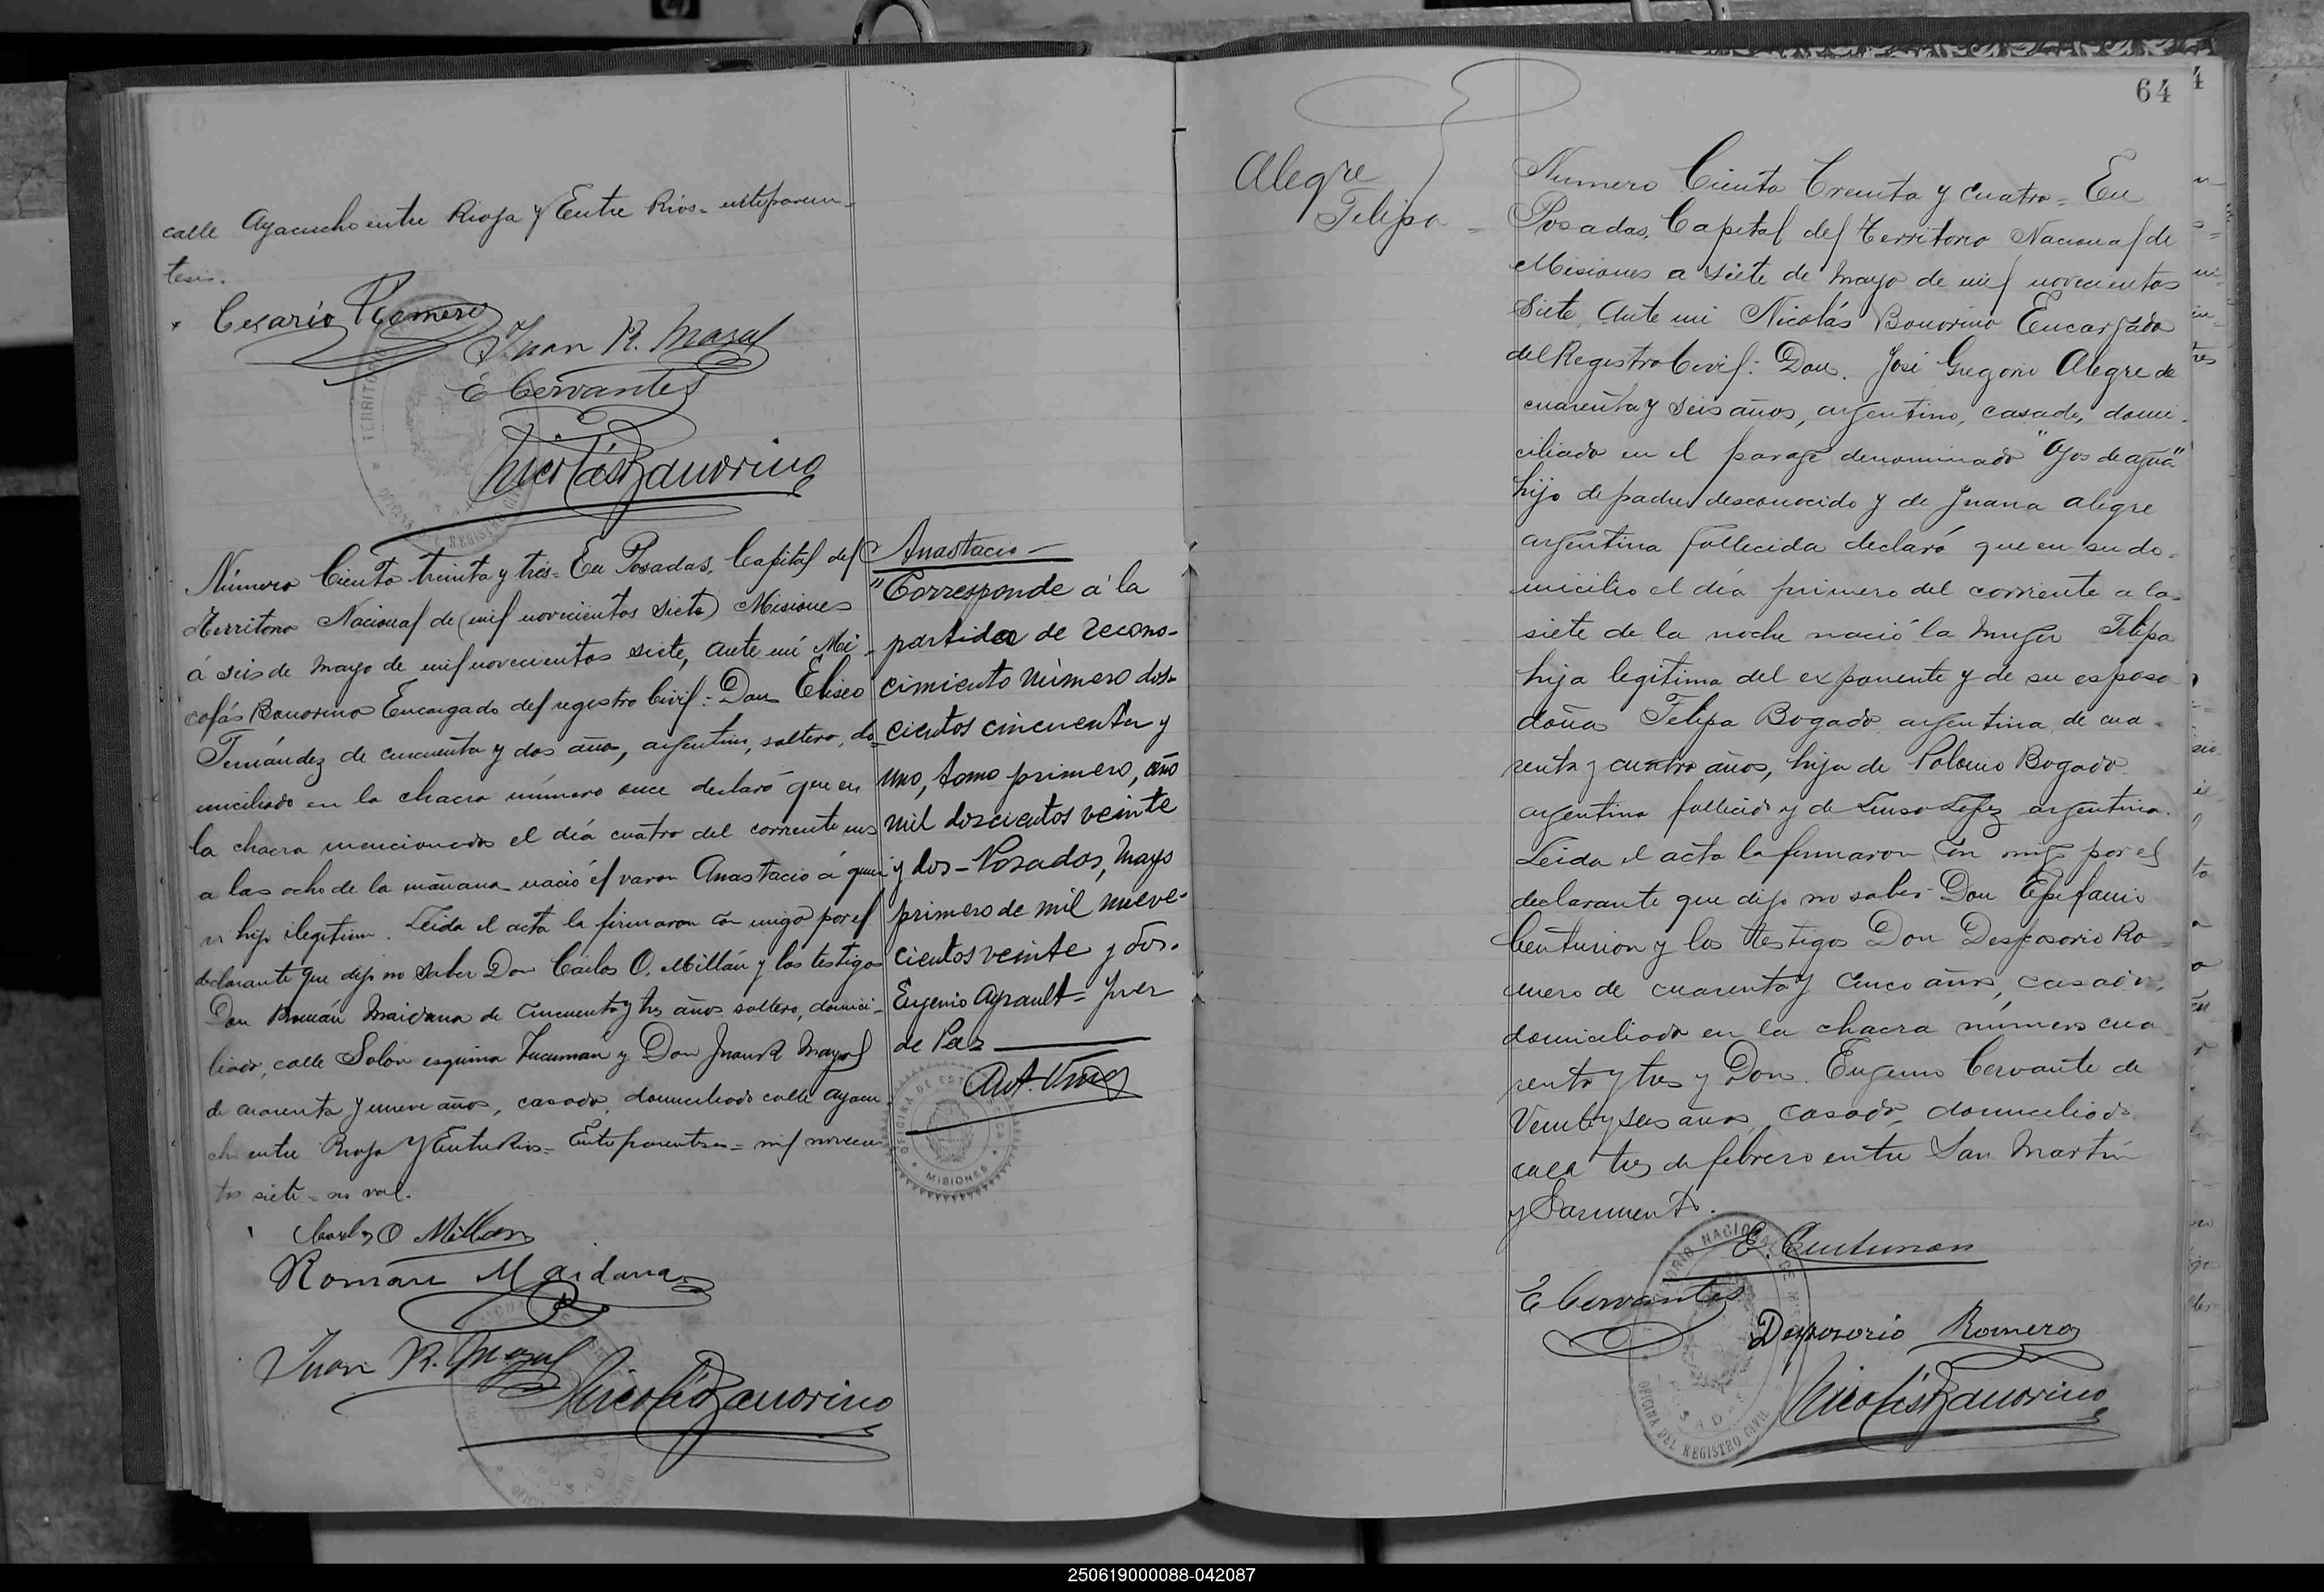 calle Ayacucho entre Rioja y Entre Rios - entreparen-
tesis.
Cesario Romero
Juan R. Mazal
E Cervantes
Nicolás Bonorino
Número Ciento treinta y tres = En Posadas, Capital del
Territorio Nacional de (mil novecientos siete) Misiones
á seis de mayo de mil novecientos siete, ante mi Ni-
colás Bonorino Encargado del registro Civil: Don Eliseo
Fernández de cincuenta y dos años, argentino, soltero, do-
miciliado en la chacra número once declaró que en
la chacra mencionada el día cuatro del corriente mes
a las ocho de la mañana nació el varon Anastacio á quien
su hijo ilegitimo. Leida el acta la firmaron con migo por el
declarante que dijo no saber Don Cárlos O. Millán y los testigos
Don Román Maidana de cincuenta y tres años soltero, domici-
liado, calle Colon esquina Tucumán y Don Juan R Mazal
de cuarenta y nueve años, casado, domiciliado calle Ayacu-
cho entre Rioja y Entre Rios = Entreparentesis = mil novecien
tos siete = no val.
Carlos O Millan
Román Maidana
Juan R. Mazal
Nicolás Bonorino
Anastacio -
"Corresponde á la
partida de recono-
cimiento número dos-
cientos cincuenta y
uno, tomo primero, año
mil doscientos veinte
y dos - Posadas, Mayo
primero de mil nueve-
cientos veinte y dos.
Eugenio Ayrault = Juez
de Paz
OFICINA DE
MISIONES
64
Alegre
Felipa =
Numero Ciento Treinta y cuatro = En
Posadas, Capital del Territorio Nacional de
Misiones a siete de mayo de mil novecientos
siete, Ante mi Nicolás Bonorino Encargado
del Registro Civil: Don. José Gregorio Alegre de
cuarenta y seis años, argentino, casado, domi-
ciliado en el parage denominado "Ojos de agua"
hijo de padre desconocido y de Juana Alegre
argentina fallecida declaró que en su do-
micilio el día primero del corriente a las
siete de la noche nació la muger Felipa
hija legitima del exponente y de su esposa
doña Felipa Bogado argentina, de cua-
renta y cuatro años, hija de Bogado
argentina fallecido y de Lopez argentina.
Leida el acta la firmaron con migo por el
declarante que dijo no saber Don Epifanio
Centurion y los testigos Don Desposorio Ro-
mero de cuarenta y cinco años, casado,
domiciliado en la chacra número cua
renta y tres y Don. Eugenio Cervante de
veinte y seis años casado, domiciliado
calle tres de febrero entre San Martín
y Sarmiento.
E. Centurion
E Cervantes
Desposorio Romero
Nicolás Bonorino
OFICINA DEL REGISTRO CIVIL
250619000088-042087